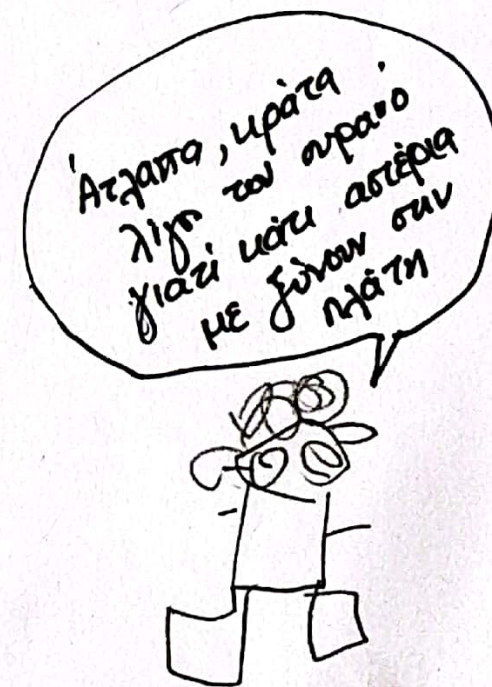 Άτλαντα, κράτα
λίγο τον ουρανό
γιατί κάτι αστέρια
με ξύνουν στην
πλάτη